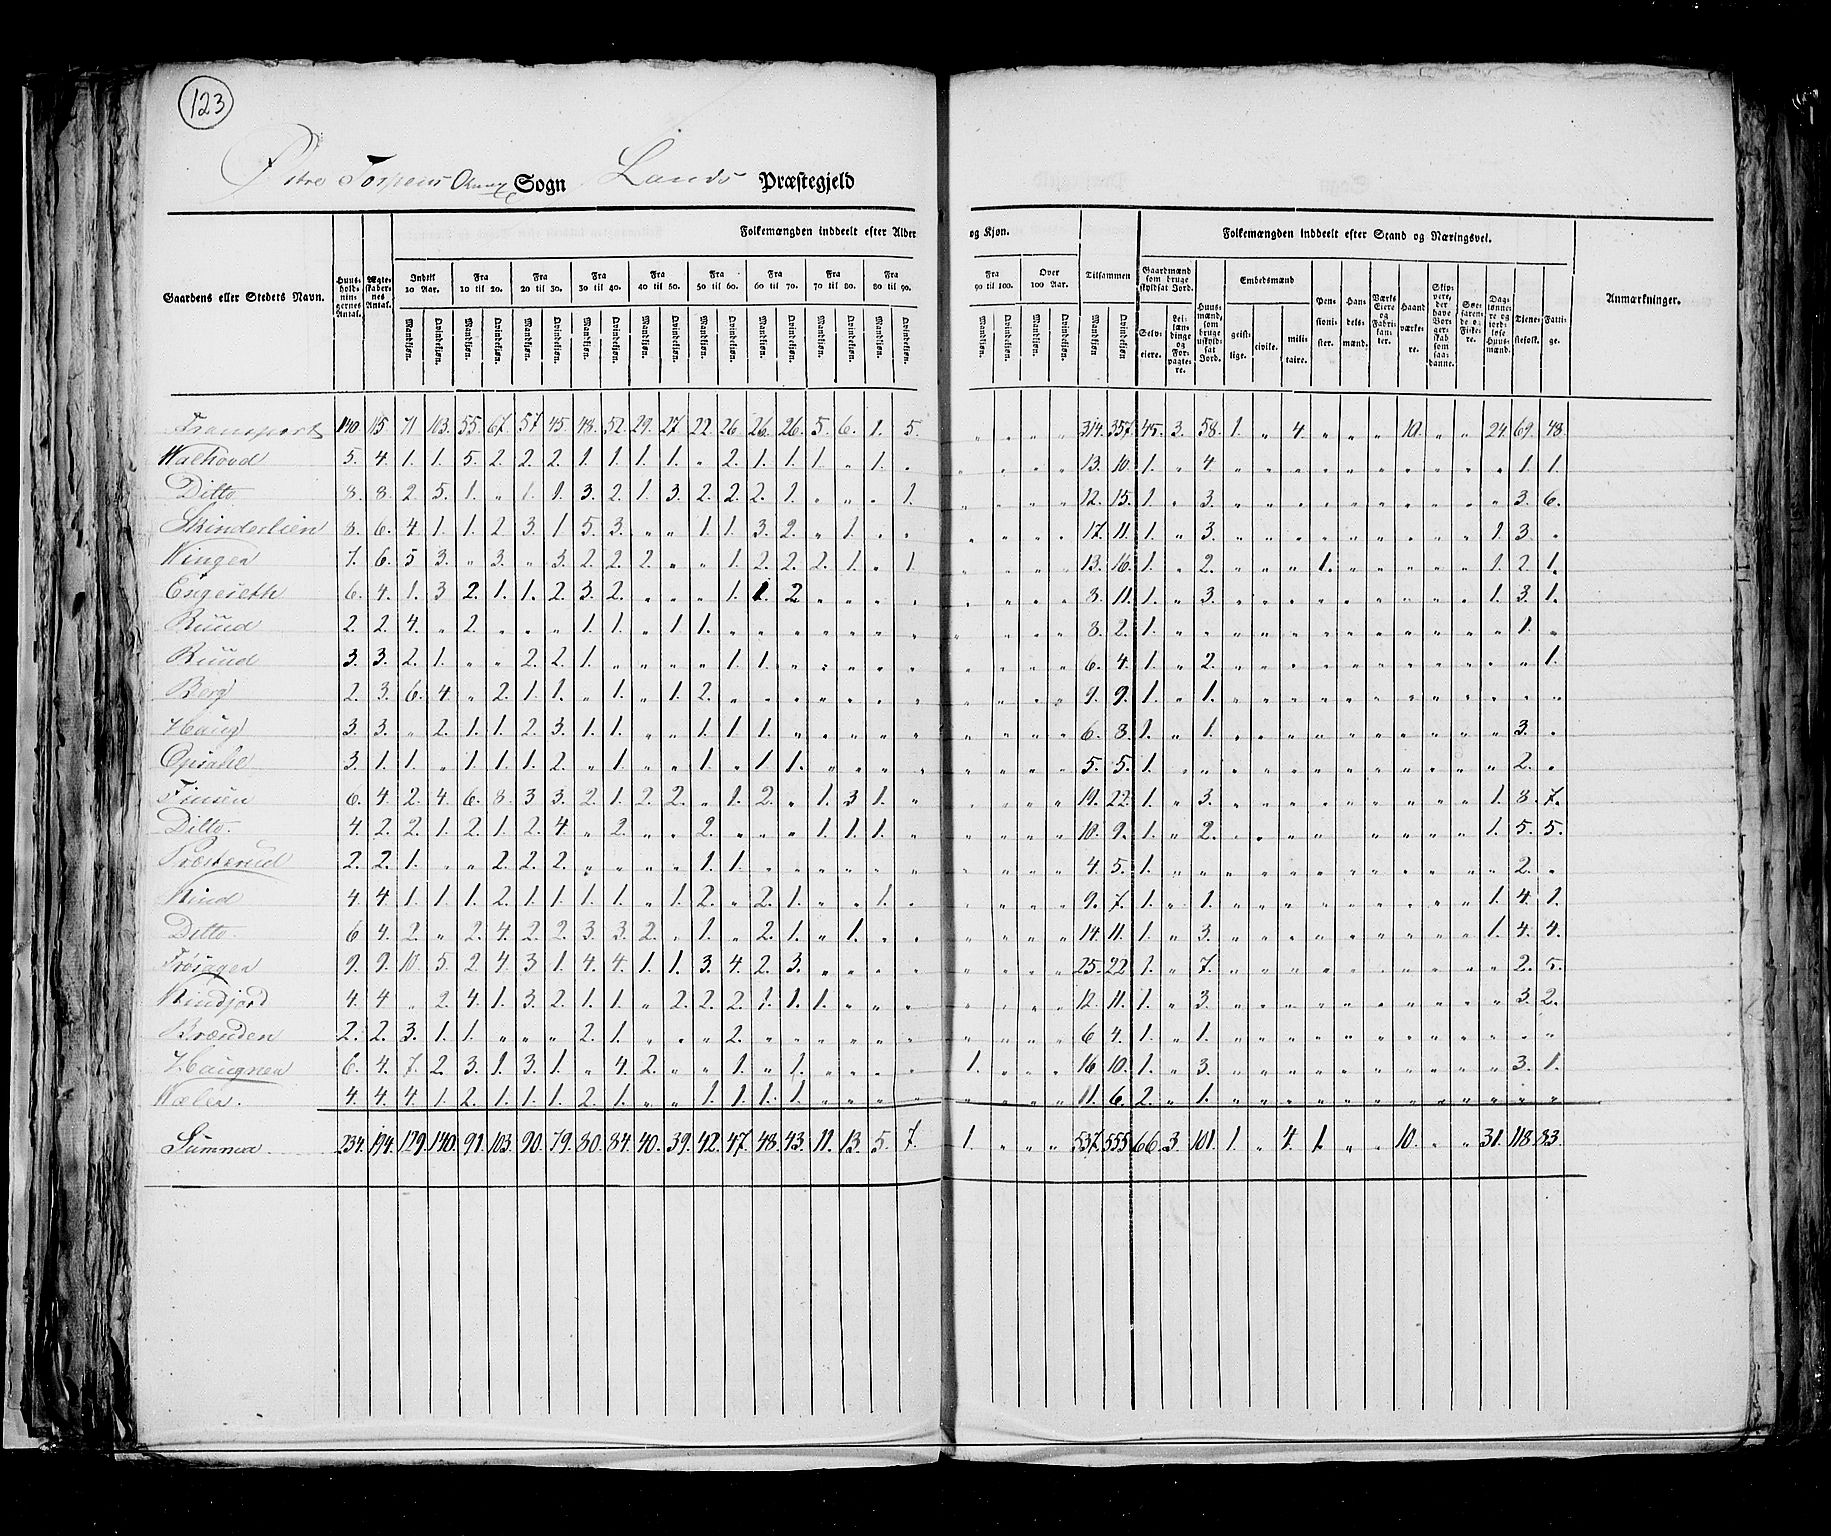 123
Østre Torpens Sogn Lands Præstegjeld
Gaardens eller Stedets Navn. Huus-holdnin-gernes Antal. Ægte-skabernes Antal. Folkemængden inddeelt efter Alder og Kjøn. Tilsammen Folkemængden inddeelt efter Stand og Næringsvei. Anmærkninger.
Indtil 10 Aar. Fra 10 til 20. Fra 20 til 30. Fra 30 til 40. Fra 40 til 50. Fra 50 til 60. Fra 60 til 70. Fra 70 til 80. Fra 80 til 90. Fra 90 til 100. Over 100 Aar. Gaardmænd som bruge skyldsat Jord. Huusmænd, som bruge uskyldsat Jord. Embedsmænd Pensionister. Handelsmænd. Værks Eiere og Fabrikanter. Haandværkere. Skippere, der have Borgerskab som saadanne. Søefarende og Fiskere. Daglønnere og jordløse Huusmænd. Tjenestefolk. Fattige.
Mandkjøn. Qvindekjøn. Mandkjøn. Qvindekjøn. Mandkjøn. Qvindekjøn. Mandkjøn. Qvindekjøn. Mandkjøn. Qvindekjøn. Mandkjøn. Qvindekjøn. Mandkjøn. Qvindekjøn. Mandkjøn. Qvindekjøn. Mandkjøn. Qvindekjøn. Mandkjøn. Qvindekjøn. Mandkjøn. Qvindekjøn. Mandkjøn. Qvindekjøn Selveiere. Leilændinge og Forpagtere. geistlige. civile. militaire.
Transport 140 115 71 103. 55. 67. 57 45. 48. 52. 29. 27. 22. 26. 26. 26. 5. 6. 1. 5. " " " " 314. 357. 45. 3. 58. 1. " 4. " " " 10. " " 24. 69. 48.
Walhovd 5. 4. 1. 1. 5. 2. 2. 2. 1. 1. 1. 1. " 2. 1. 1. 1. " 1. " " " " " 13. 10. 1. " 4. " " " " " " " " " " 1. 1.
Ditto 8. 8. 2. 5. 1. " 1. 1. 3. 2. 1. 3. 2. 2. 2. 1. " " " 1. " " " " 12. 15. 1. " 3. " " " " " " " " " " 3. 6.
Skinderlien 8. 6. 4. 1. 1. 2. 3. 1. 5. 3. " " 1. 1. 3. 2. " 1. " " " " " " 17. 11. 1. " 3. " " " " " " " " " 1. 3. "
Wingen 7. 6. 5 3. " 3. " 3. 2. 2. 2. " " 1. 2. 2. 2. 1. " 1. " " " " 13. 16. 1. " 2. " " " 1. " " " " " 1. 2. 1.
Engeseth 6. 4. 1. 3 2. 1. 1. 2. 3. 2. " " " 1. 1. 2 " " " " " " " " 8. 11. 1. " 3. " " " " " " " " " 1. 3. 1.
Ruud 2. 2. 4. " 2. " " " 1. 1. " 1. 1. " " " " " " " " " " " 8. 2. 1. " " " " " " " " " " " " 1. "
Ruud 3. 3. 2. 1. " " 2. 2. 1. " " " " 1. 1. " " " " " " " " " 6. 4. 1. " 2. " " " " " " " " " " " 1.
Berg 2. 3. 6. 4. " 2. 1. 1. " 1. " 1. 2. " " " " " " " " " " " 9. 9. 1. " 1. " " " " " " " " " " " "
Haug 3. 3. " 2. 1. 1. 2. 3. 1. 1. " " 1. 1. 1. " " " " " " " " " 6. 8. 1. " 1. " " " " " " " " " " 3. "
Opsahl 3. 1. 1. " 1. 1. 1. 2. " 1. " " 1. " 1. 1. " " " " " " " " 5. 5. 1. " " " " " " " " " " " " 2. "
Finsen 6. 4. 2. 4. 6. 8. 3. 3. 2. 1. 2. 2. " 1. 2. " 1. 3 1. " " " " " 19. 22. 1. " 3. " " " " " " " " " 1. 8. 7.
Ditto. 4. 2. 2. 1. 2. 1. 2. 4. " 2. " " 2. " " " 1. 1. 1. " " " " " 10. 9. 1. " 2. " " " " " " " " " 1. 5. 5.
Præsterud 2. 2. 1. " " 2. 2. 2. " " " " 1. 1. " " " " " " " " " " 4. 5. 1. " " " " " " " " " " " " 2. "
Kind 4. 4. 1. 1. 1. 2. 1. 1. 1. 1. " 1. 2. " 2. 1. " " 1. " " " " " 9. 7. 1. " 1. " " " " " " " " " 1. 4. 1.
Ditto. 6 4. 2. " 2. 4. 2. 2. 3. 3. 2. " 1. " 2. 1. " 1. " " " " " " 14. 11. 1. " 3. " " " " " " " " " 1. 4. 4.
Frøsagen 9. 9. 10. 5. 2. 4. 3. 1. 4. 4. 1. 1. 3. 4. 2. 3. " " " " " " " " 25. 22 1. " 7. " " " " " " " " " " 2. 5.
Kindjord 4. 4 " 2. 4. 1. 3. 2. 1. 1. " 2. 2. 2. 1. 1. 1. " " " " " " " 12. 11. 1. " 3. " " " " " " " " " " 3. 2.
Brænden 2. 2. 3. 1. 1. " " " 2. 1. " " " 2. " " " " " " " " " " 6 4. 1. " 1. " " " " " " " " " " " "
Haugnen 6. 4. 7. 2 3. 1. 3. 1. " 4. 2. " " 1. " 1. " " " " 1. " " " 16 10. 1. " 3. " " " " " " " " " " 3. 1.
Wæler. 4. 4. 4. 1. 2. 1. 1. 1. 2. 1. " " 1. 1. 1. 1. " " " " " " " " 11. 6. 2. " 1. " " " " " " " " " " " "
Summa 234. 194. 129. 140. 91. 103. 90. 79. 80. 84. 40. 39. 42. 47. 48. 43. 11. 13. 5. 7. 1. " " " 537. 555. 66. 3. 101. 1. " 4. 1. " " 10. " " 31. 118. 83.